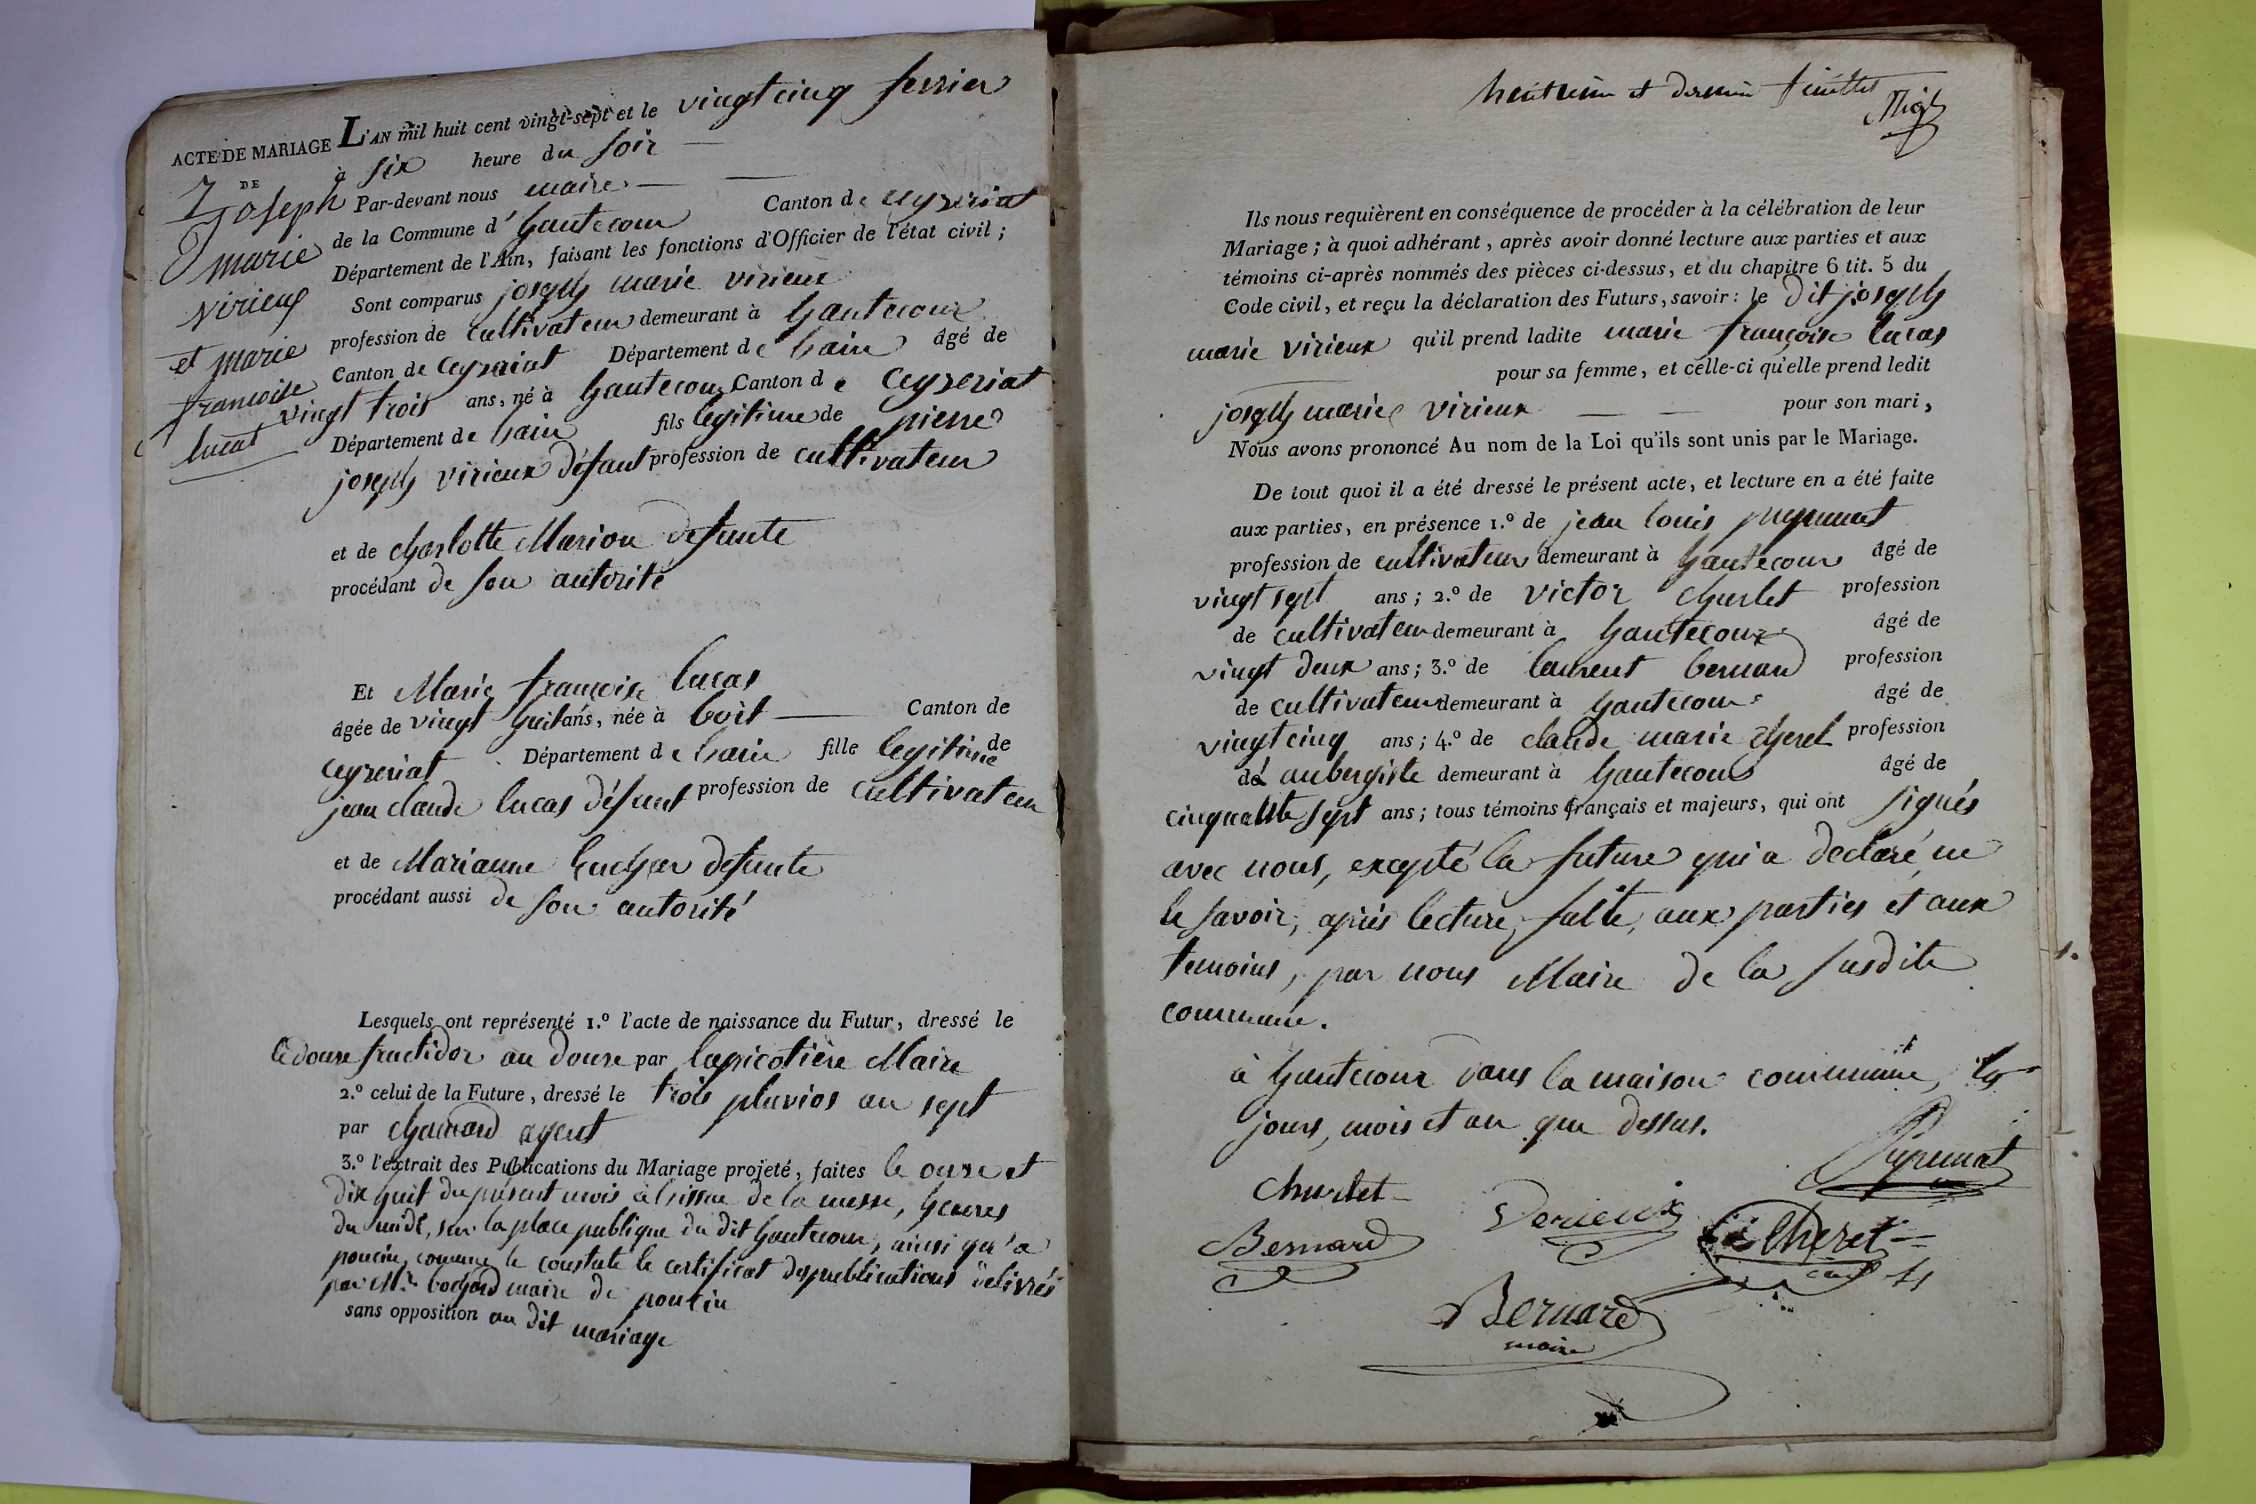 ACTE DE MARIAGE L'AN mil huit cent vingt-sept et le vingt cinq fevrier
DE à six heure du soir
7 Joseph Par-devant nous maire
marie de la Commune d' hautecour Canton de ceyzeriat
Département de l'Ain, faisant les fonctions d'Officier de l'état civil ;
virieux Sont comparus joseph marie virieux
et marie profession de cultivateur demeurant à hautecour
francoise Canton de ceyzeriat Département de l'ain âgé de
lucas vingt trois ans, né à hautecour Canton de ceyzeriat
Département de l'ain fils legitime de pierre
joseph virieux défunt profession de cultivateur
et de charlotte Marion defunte
procédant de son autorité
Et Marie françoise lucas
âgée de vingt huit ans, née à Canton de
ceyzeriat Département de l'ain fille legitime de
jean claude lucas défunt profession de cultivateur
et de Marianne defunte
procédant aussi de son autorité
Lesquels ont représenté 1.º l'acte de naissance du Futur, dressé le
le douze fructidor an douze par lapicotière Maire
2.º celui de la Future, dressé le trois pluvios an sept
par agent
3.º l'extrait des Publications du Mariage projeté, faites le onze et
dix huit du présent mois à l'issue de la messe, heures
du midi, sur la place publique du dit hautecour, ainsi qu'a
poncin, comme le constate le certificat des publications délivrés
par Mr. bochard maire de poncin
sans opposition au dit mariage
huitieme et dernier feuillet
Ils nous requièrent en conséquence de procéder à la célébration de leur
Mariage ; à quoi adhérant, après avoir donné lecture aux parties et aux
témoins ci-après nommés des pièces ci-dessus, et du chapitre 6 tit. 5 du
Code civil, et reçu la déclaration des Futurs, savoir : le dit joseph
marie virieux qu'il prend ladite marie françoise lucas
pour sa femme, et celle-ci qu'elle prend ledit
joseph marie virieux pour son mari,
Nous avons prononcé Au nom de la Loi qu'ils sont unis par le Mariage.
De tout quoi il a été dressé le présent acte, et lecture en a été faite
aux parties, en présence 1.º de jean louis
profession de cultivateur demeurant à hautecour âgé de
vingt sept ans ; 2.º de victor churlet profession
de cultivateur demeurant à hautecour âgé de
vingt deux ans ; 3.º de laurent bernard profession
de cultivateur demeurant à hautecour âgé de
vingt cinq ans ; 4.º de claude marie cheret profession
d' aubergiste demeurant à hautecour âgé de
cinquante sept ans ; tous témoins français et majeurs, qui ont signés
avec nous, excepté la future qui a declaré ne
le savoir, après lecture, faite, aux parties et aux
temoins, par nous Maire de la susdite
commune.
à hautecour dans la maison commune, les
jours, mois et an que dessus.
Churlet
Bernard
Verieux
Cheret
Bernard
maire